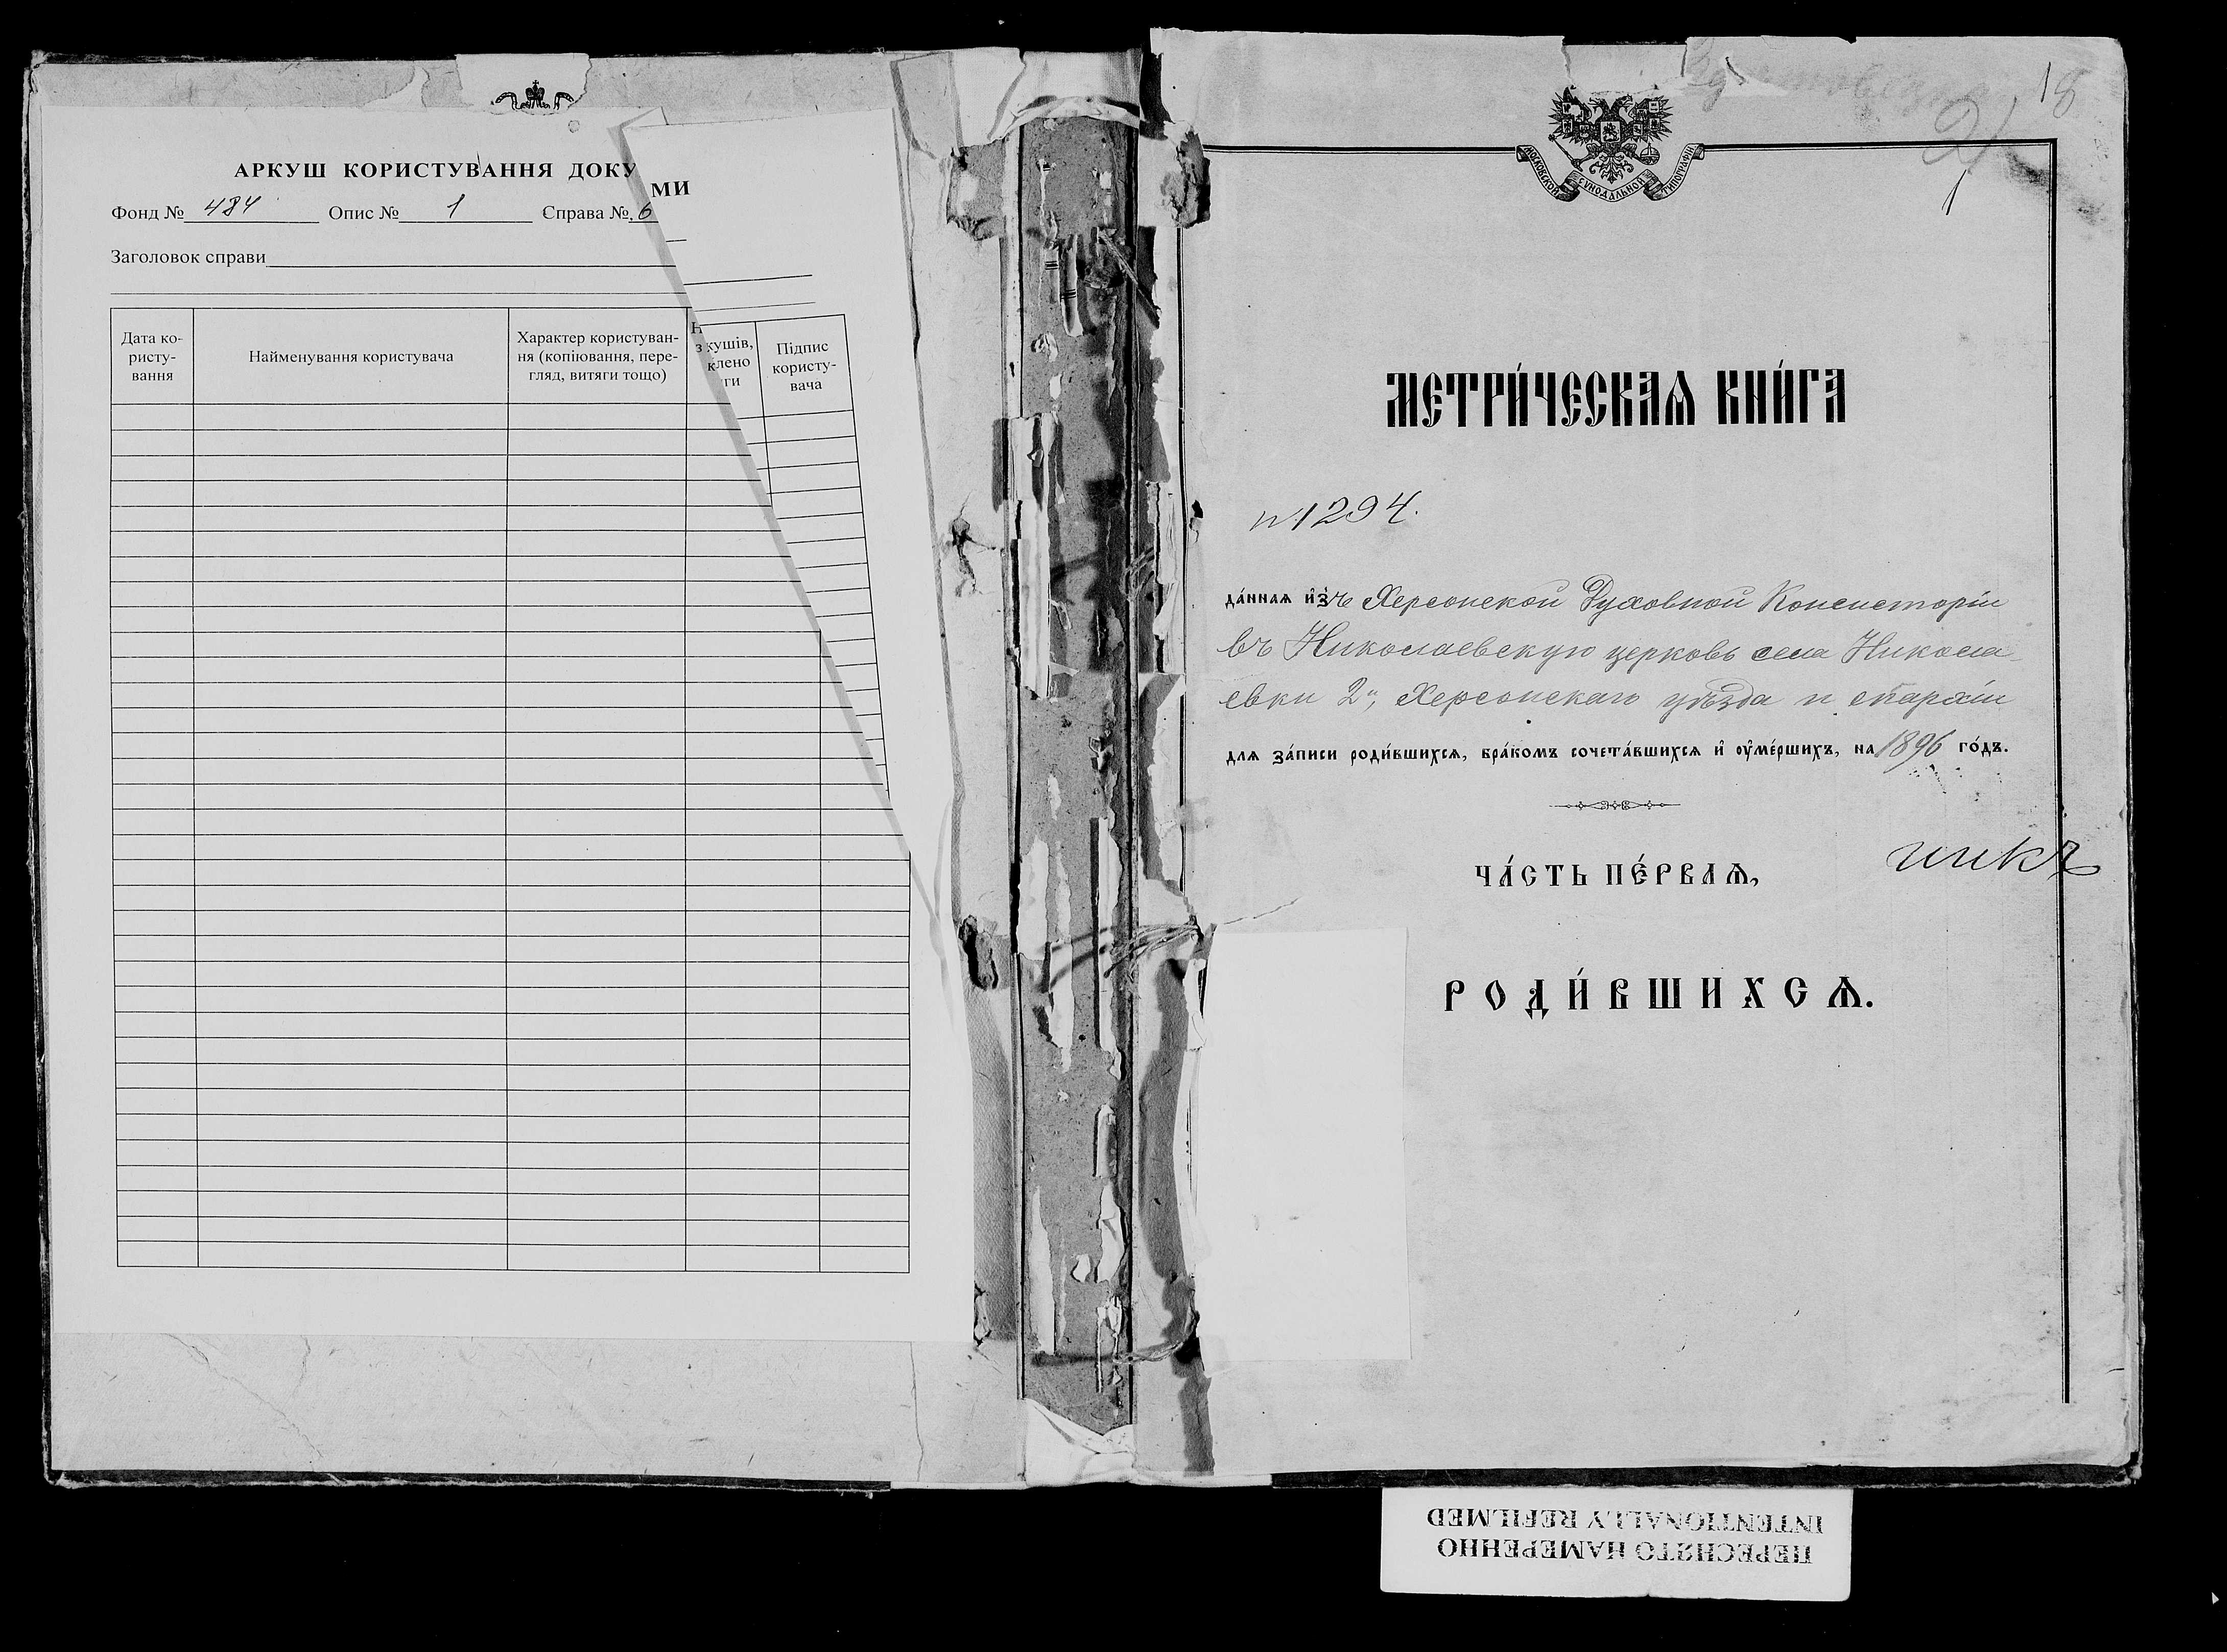 АРКУШ КОРИСТУВАННЯ ДОКУ
МИ
Фонд № 484 Опис № 1 Справа № 6
Заголовок справи
Дата ко-
ристу-
вання
Найменування користувача
Характер користуван-
ня (копіювання, пере-
гляд, витяги тощо)
Н
з
кушів,
клено
ги
Підпис
користу-
вача
18
2
1
МОСКОВСКОЙ СѴНОДАЛЬНОЙ ТИПОГРАФІИ
МЕТРИ́ЧЕСКАѦ КНИ́ГА
№ 1294.
да́ннаѧ и҆зъ Херсонской Духовной Консисторіи
въ Николаевскую церковь села Никола-
евки 2й, Херсонскаго уѣзда и епархіи
длѧ за́писи роди́вшихсѧ, бра́комъ сочета́вшихсѧ и҆ ᲂу҆ме́ршихъ, на 1896 го́дъ.
ЧА́СТЬ ПЕ́РВАѦ,
РОДИ́ВШИХСѦ.
ПЕРЕСНЯТО НАМЕРЕННО
INTENTIONALLY REFILMED